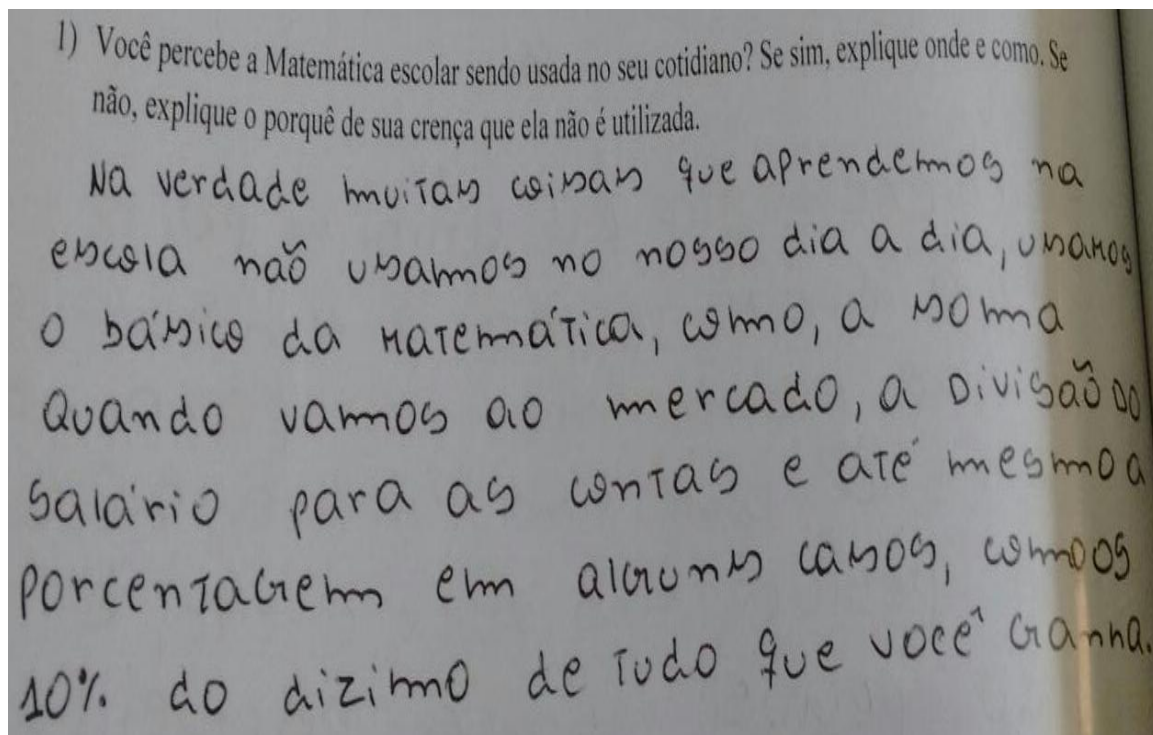 1) Você percebe a Matemática escolar sendo usada no seu cotidiano? Se sim, explique onde e como. Se
não, explique o porquê de sua crença que ela não é utilizada.
Na verdade muitas coisas que aprendemos na
escola não usamos no nosso dia a dia, usamos
o básico da matemática, como, a soma
Quando vamos ao mercado, a Divisão do
salário para as contas e até mesmo a
porcentagem em alguns casos, como os
10% do dizimo de tudo que você ganha.